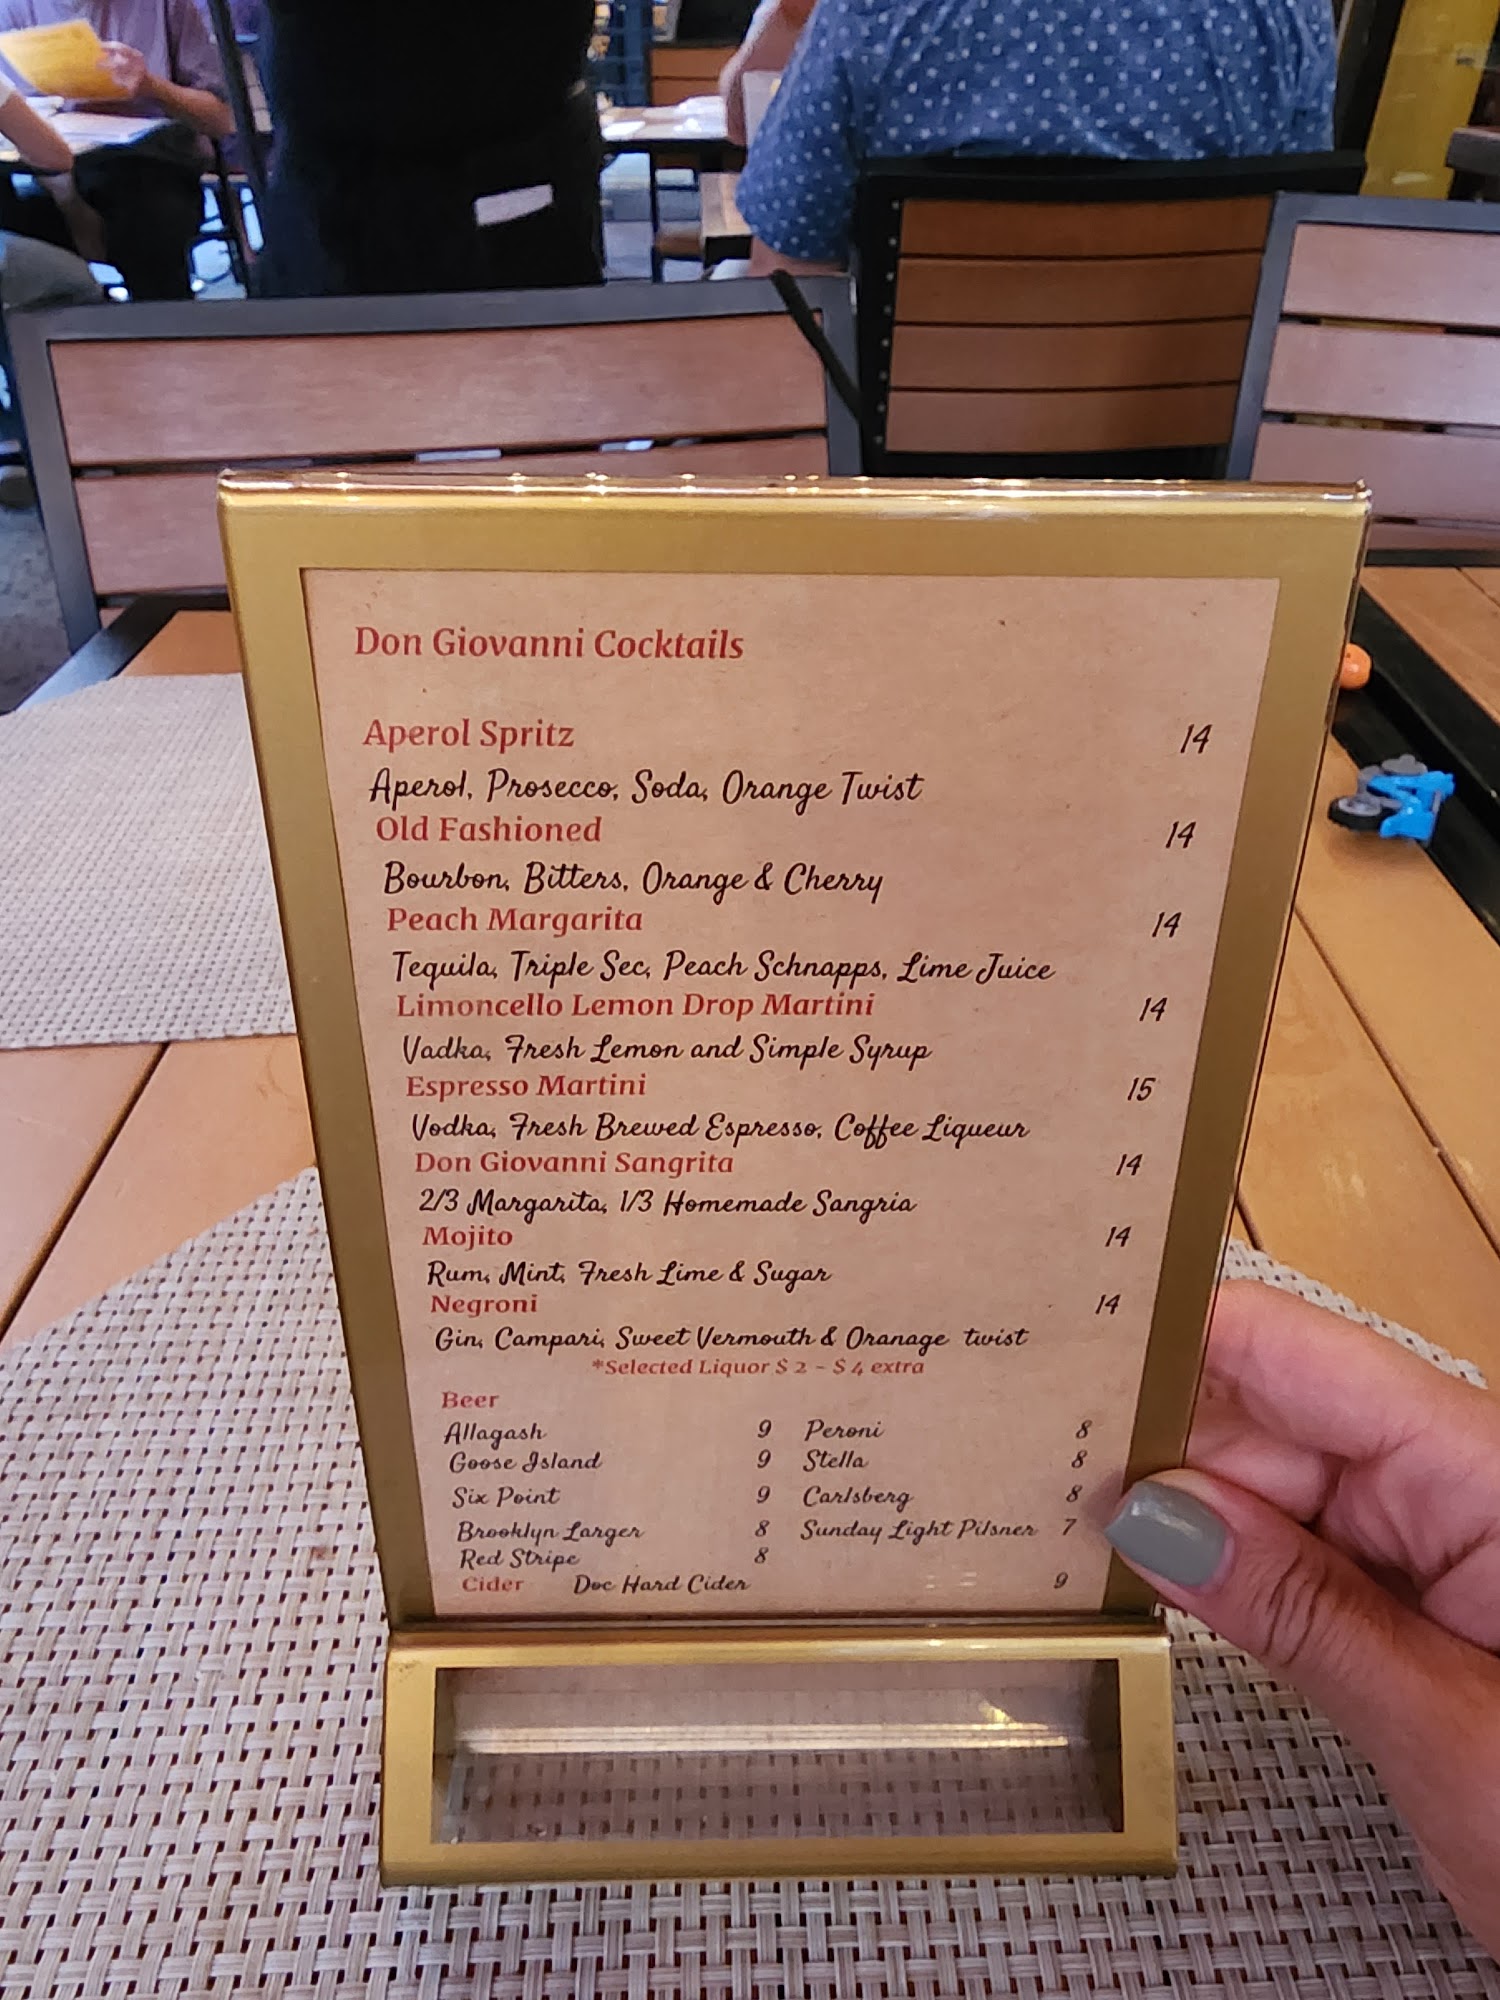 Don Giovanni Cocktails
Aperol Spritz 14
Aperol, Prosecco, Soda, Orange Twist
Old Fashioned 14
Bourbon, Bitters, Orange & Cherry
Peach Margarita 14
Tequila, Triple Sec, Peach Schnapps, Lime Juice
Limoncello Lemon Drop Martini 14
Vadka, Fresh Lemon and Simple Syrup
Espresso Martini 15
Vodka, Fresh Brewed Espresso, Coffee Liqueur
Don Giovanni Sangrita 14
2/3 Margarita, 1/3 Homemade Sangria
Mojito 14
Rum, Mint, Fresh Lime & Sugar
Negroni 14
Gin, Campari, Sweet Vermouth & Oranage twist
*Selected Liquor $ 2 - $ 4 extra
Beer
Allagash 9 Peroni 8
Goose Island 9 Stella 8
Six Point 9 Carlsberg 8
Brooklyn Larger 8 Sunday Light Pilsner 7
Red Stripe 8
Cider Doc Hard Cider 9